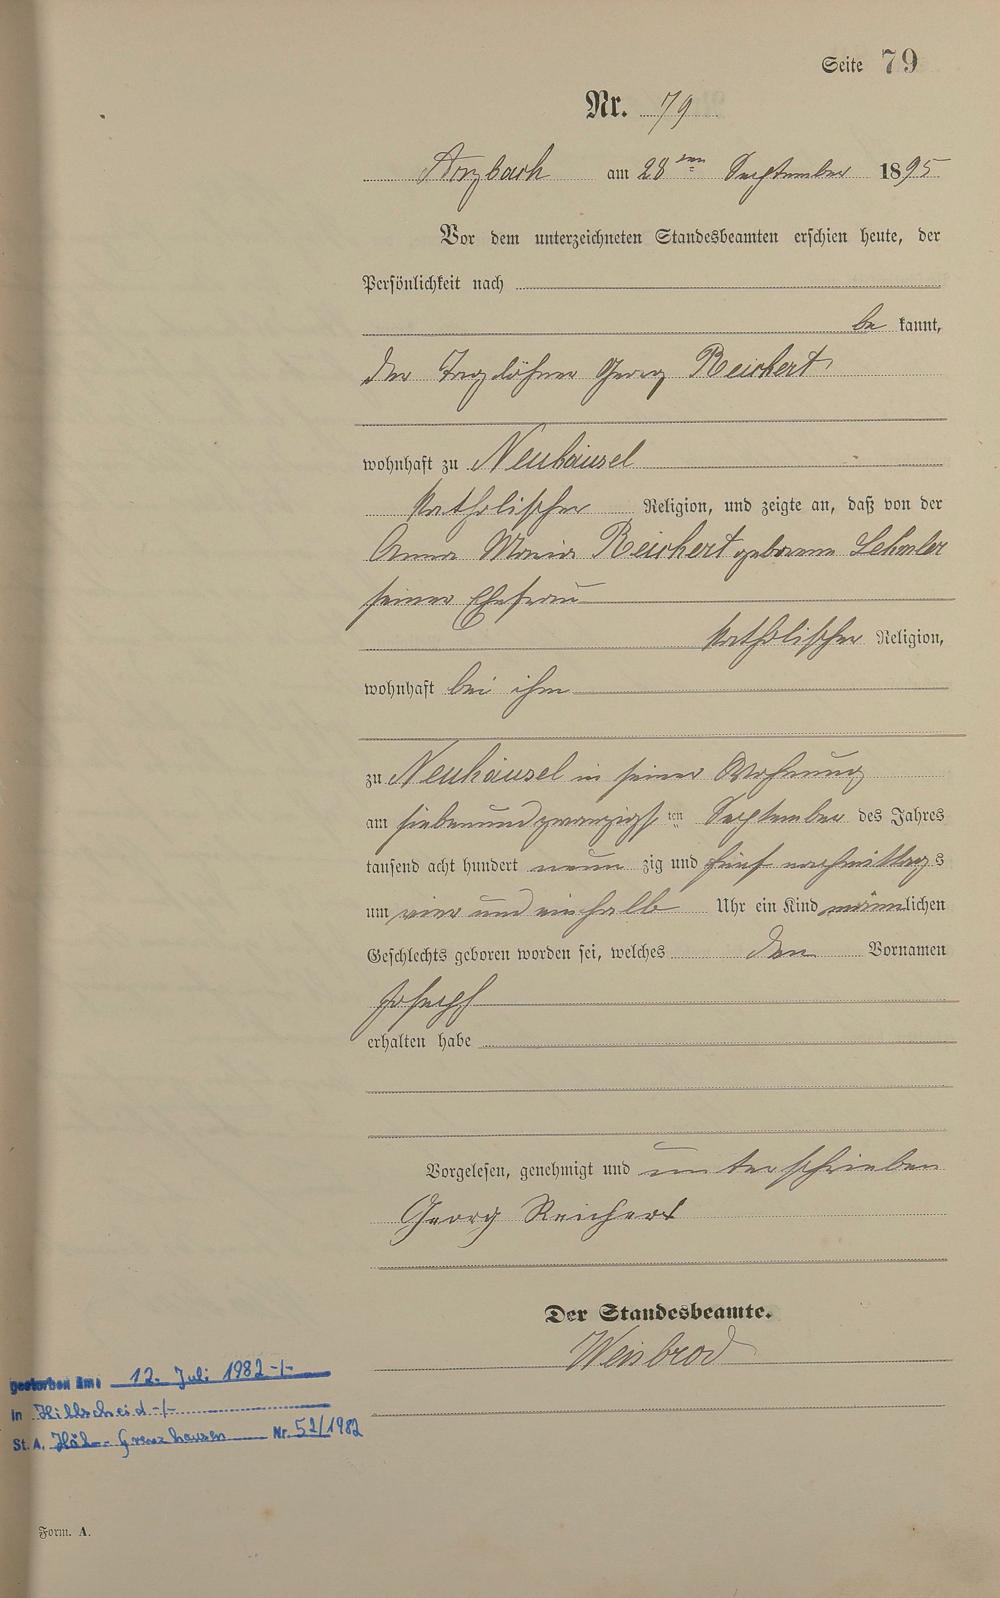 Seite 79
Nr. 79
Arzbach am 28 ten September 1895
Vor dem unterzeichneten Standesbeamten erschien heute, der
Persönlichkeit nach
be kannt,
der Taglöhner Georg Reichert
wohnhaft zu Neuhäusel
katholischer Religion, und zeigte an, daß von der
Anna Maria Reichert geborene Lehmler
seiner Ehefrau
katholischer Religion,
wohnhaft bei ihm
zu Neuhäusel in seiner Wohnung
am siebenundzwanzigsten September des Jahres
tausend acht hundert neun zig und fünf nachmittags
um vier und einhalb Uhr ein Kind männlichen
Geschlechts geboren worden sei, welches den Vornamen
Joseph
erhalten habe
Vorgelesen, genehmigt und unterschrieben
Georg Reichert
Der Standesbeamte.
Weisbrod
gestorben am: 12. Juli 1982 -/-
in Hillscheid -/-
St. A. Höhr-Grenzhausen Nr. 52/1982
Form. A.